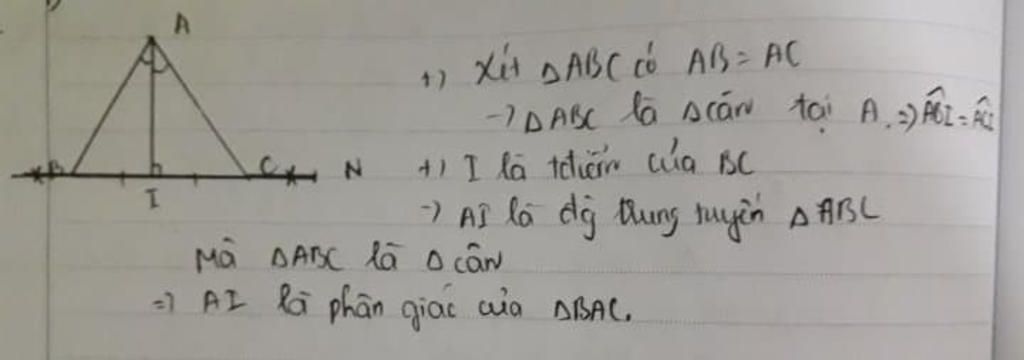 A
B
C
N
I
+) Xét △ABC có AB = AC
→ △ABC là △cân tại A. ⇒ ABI^ = ACI^
+) I là tđiểm của BC
→ AI là đg trung tuyến △ABC
Mà △ABC là △ cân
⇒ AI là phân giác của △BAC.